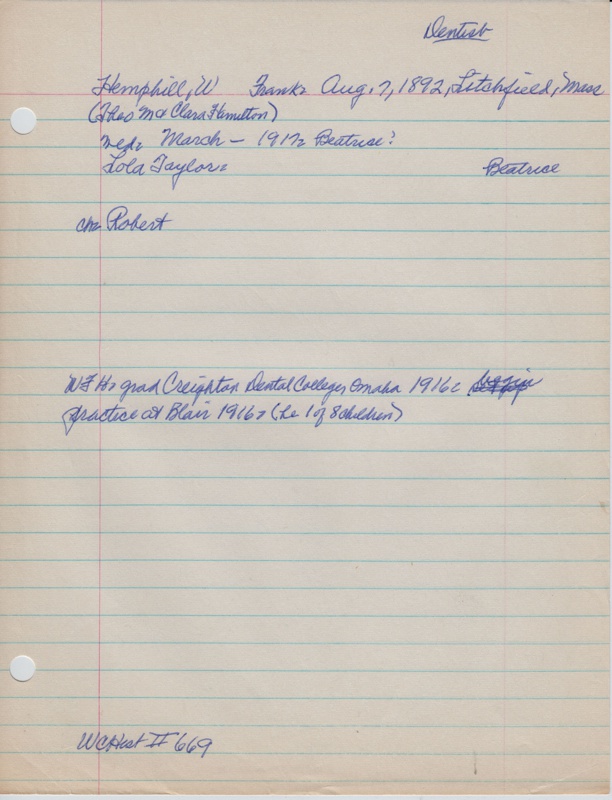 Dentist
Hemphill, W Frank, Aug. 7, 1892, Litchfield, Mass
(Theo M & Clara Hamilton)
md, March - 1917, Beatrice?
Lola Taylor: Beatrice
ch: Robert
WFH: grad Creighton Dental College, Omaha 1916:
practice at Blair 1916: (he 1 of 8 children)
WCHist II 669